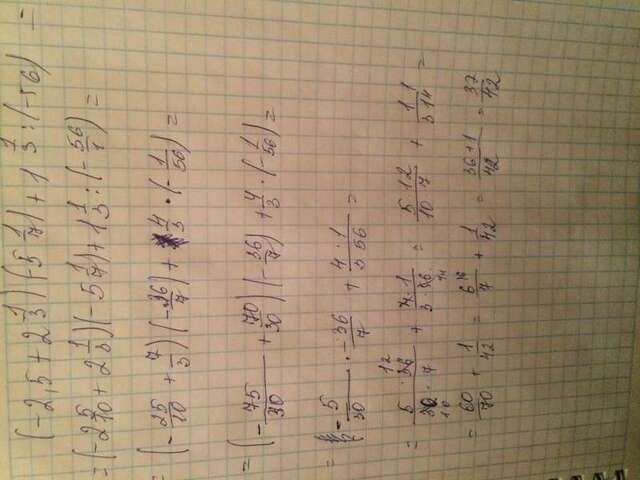 (-2,5 + 2 1/3)(-5 1/7) + 1 1/3 : (-56) =
= (-2 5/10 + 2 1/3)(-5 1/7) + 1 1/3 : (-56/1) =
= (-25/10 + 7/3)(-36/7) + 4/3 · (-1/56) =
= (-75/30 + 70/30)(-36/7) + 4/3 · (-1/56) =
= -5/30 · -36/7 + 4·1/3 56 =
= 5 · 36 12/30 10 · 7 + 4·1/3·56 14 = 5 12/10 7 + 1 1/3 14 =
= 60/70 + 1/42 = 6/7 + 1/42 = 36+1/42 = 37/42